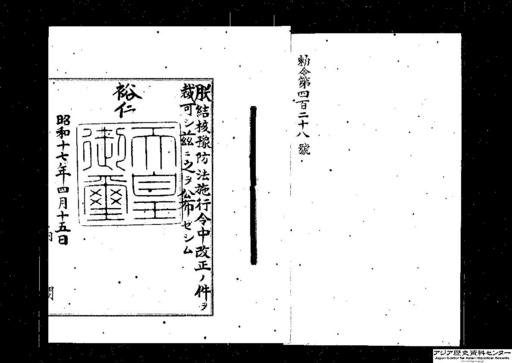 勅令第四百二十八號
朕結核豫防法施行令中改正ノ件ヲ
裁可シ茲ニ之ヲ公布セシム
裕仁
天皇御璽
昭和十七年四月十五日
アジア歴史資料センター
Japan Center for Asian Historical Records